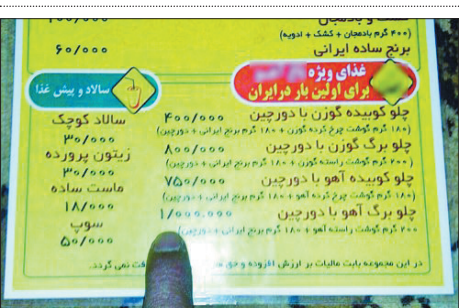 کشک و بادمجان
(۴۰۰ گرم بادمجان + کشک + ادویه)
برنج ساده ایرانی ۶۰/۰۰۰
غذای ویژه
برای اولین بار در ایران
چلو کوبیده گوزن با دورچین ۴۰۰/۰۰۰
(۱۸۰ گرم گوشت چرخ کرده گوزن + ۱۸۰ گرم برنج ایرانی + دورچین)
چلو برگ گوزن با دورچین ۸۰۰/۰۰۰
(۲۰۰ گرم گوشت راسته گوزن + ۱۸۰ گرم برنج ایرانی + دورچین)
چلو کوبیده آهو با دورچین ۷۵۰/۰۰۰
(۱۸۰ گرم گوشت چرخ کرده آهو + ۱۸۰ گرم برنج ایرانی + دورچین)
چلو برگ آهو با دورچین ۱/۰۰۰.۰۰۰
۲۰۰ گرم گوشت راسته آهو + ۱۸۰ گرم برنج ایرانی + دورچین)
سالاد و پیش غذا
سالاد کوچک
۳۰/۰۰۰
زیتون پرورده
۳۰/۰۰۰
ماست ساده
۱۸/۰۰۰
سوپ
۵۰/۰۰۰
در این مجموعه بابت مالیات بر ارزش افزوده و حق نمی گردد.